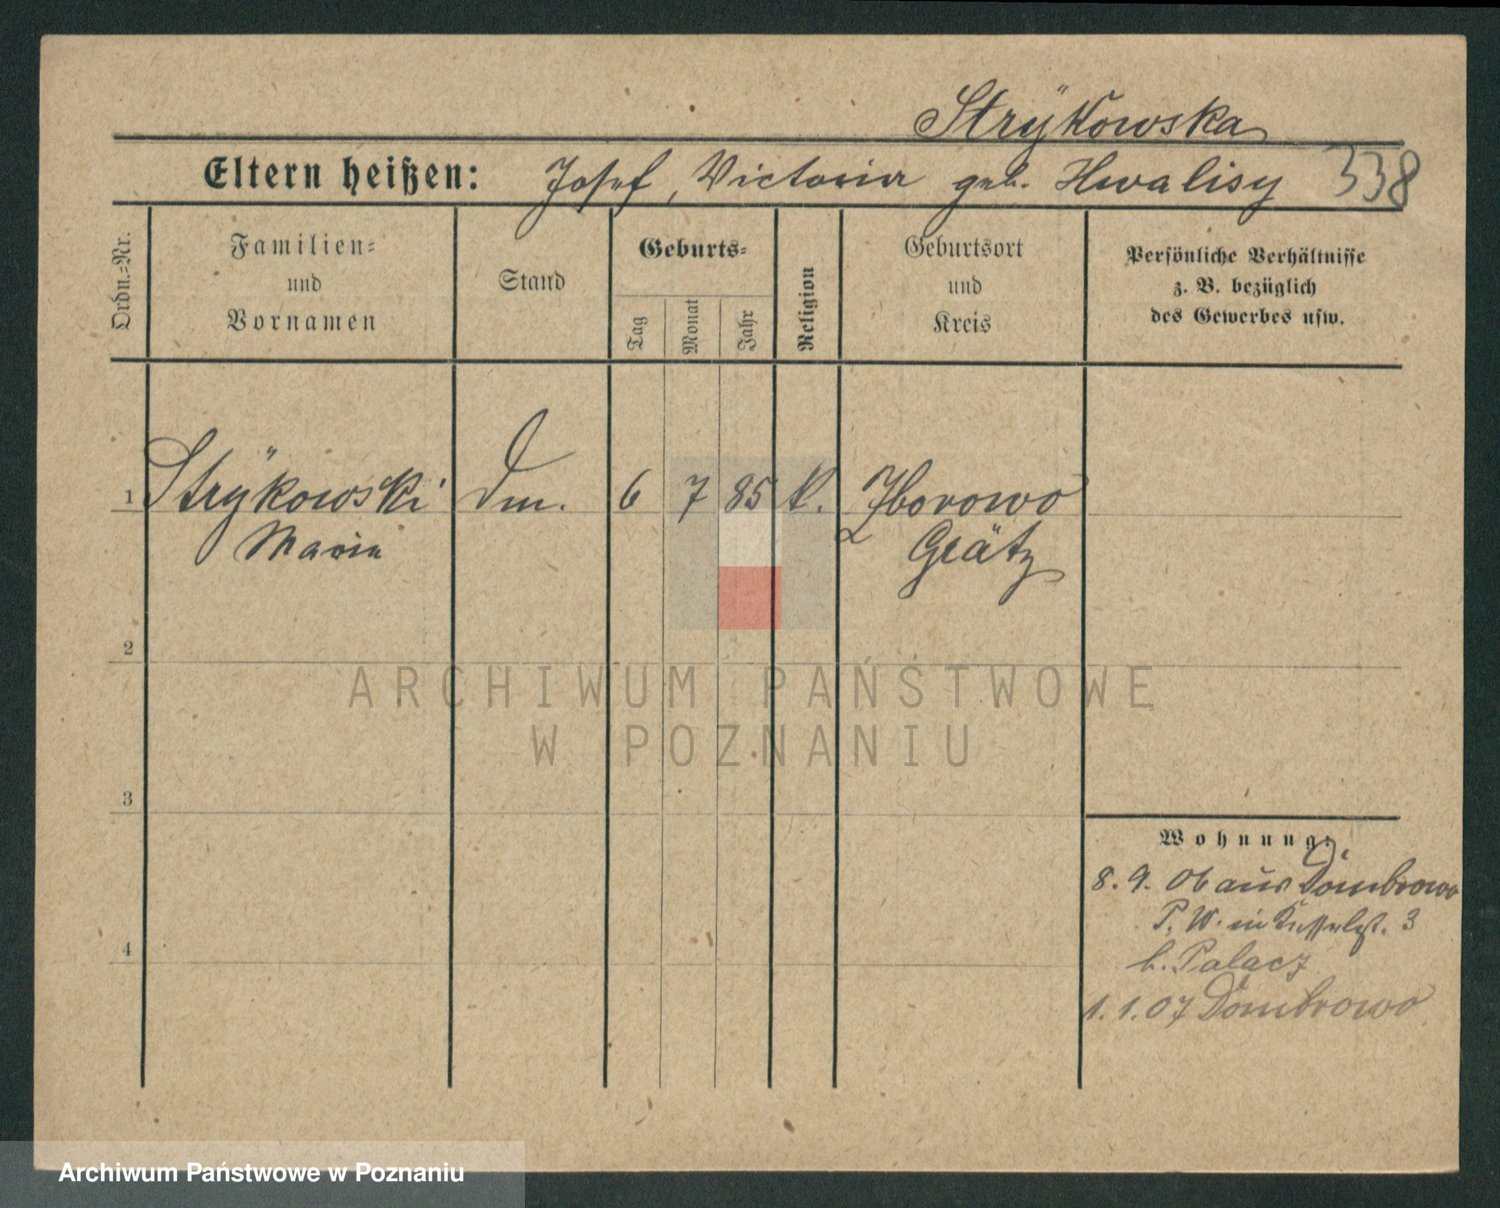 Strÿkowska
Eltern heißen: Josef, Victoria geb. Hwalisy 338
Ordn.-Nr.
Familien-
und
Vornamen
Stand
Geburts-
Tag
Monat
Jahr
Religion
Geburtsort
und
Kreis
Persönliche Verhältnisse
z. B. bezüglich
des Gewerbes usw.
1 Strÿkowski Dm. 6 7 85 k. Zborowo
Maria Grätz
2
ARCHIWUM PAŃSTWOWE
W POZNANIU
3
Wohnung:
8. 9. 06 aus Dombrowo
P. W. in 3
4
b. Palacz
1. 1. 07 Dombrowo
Archiwum Państwowe w Poznaniu